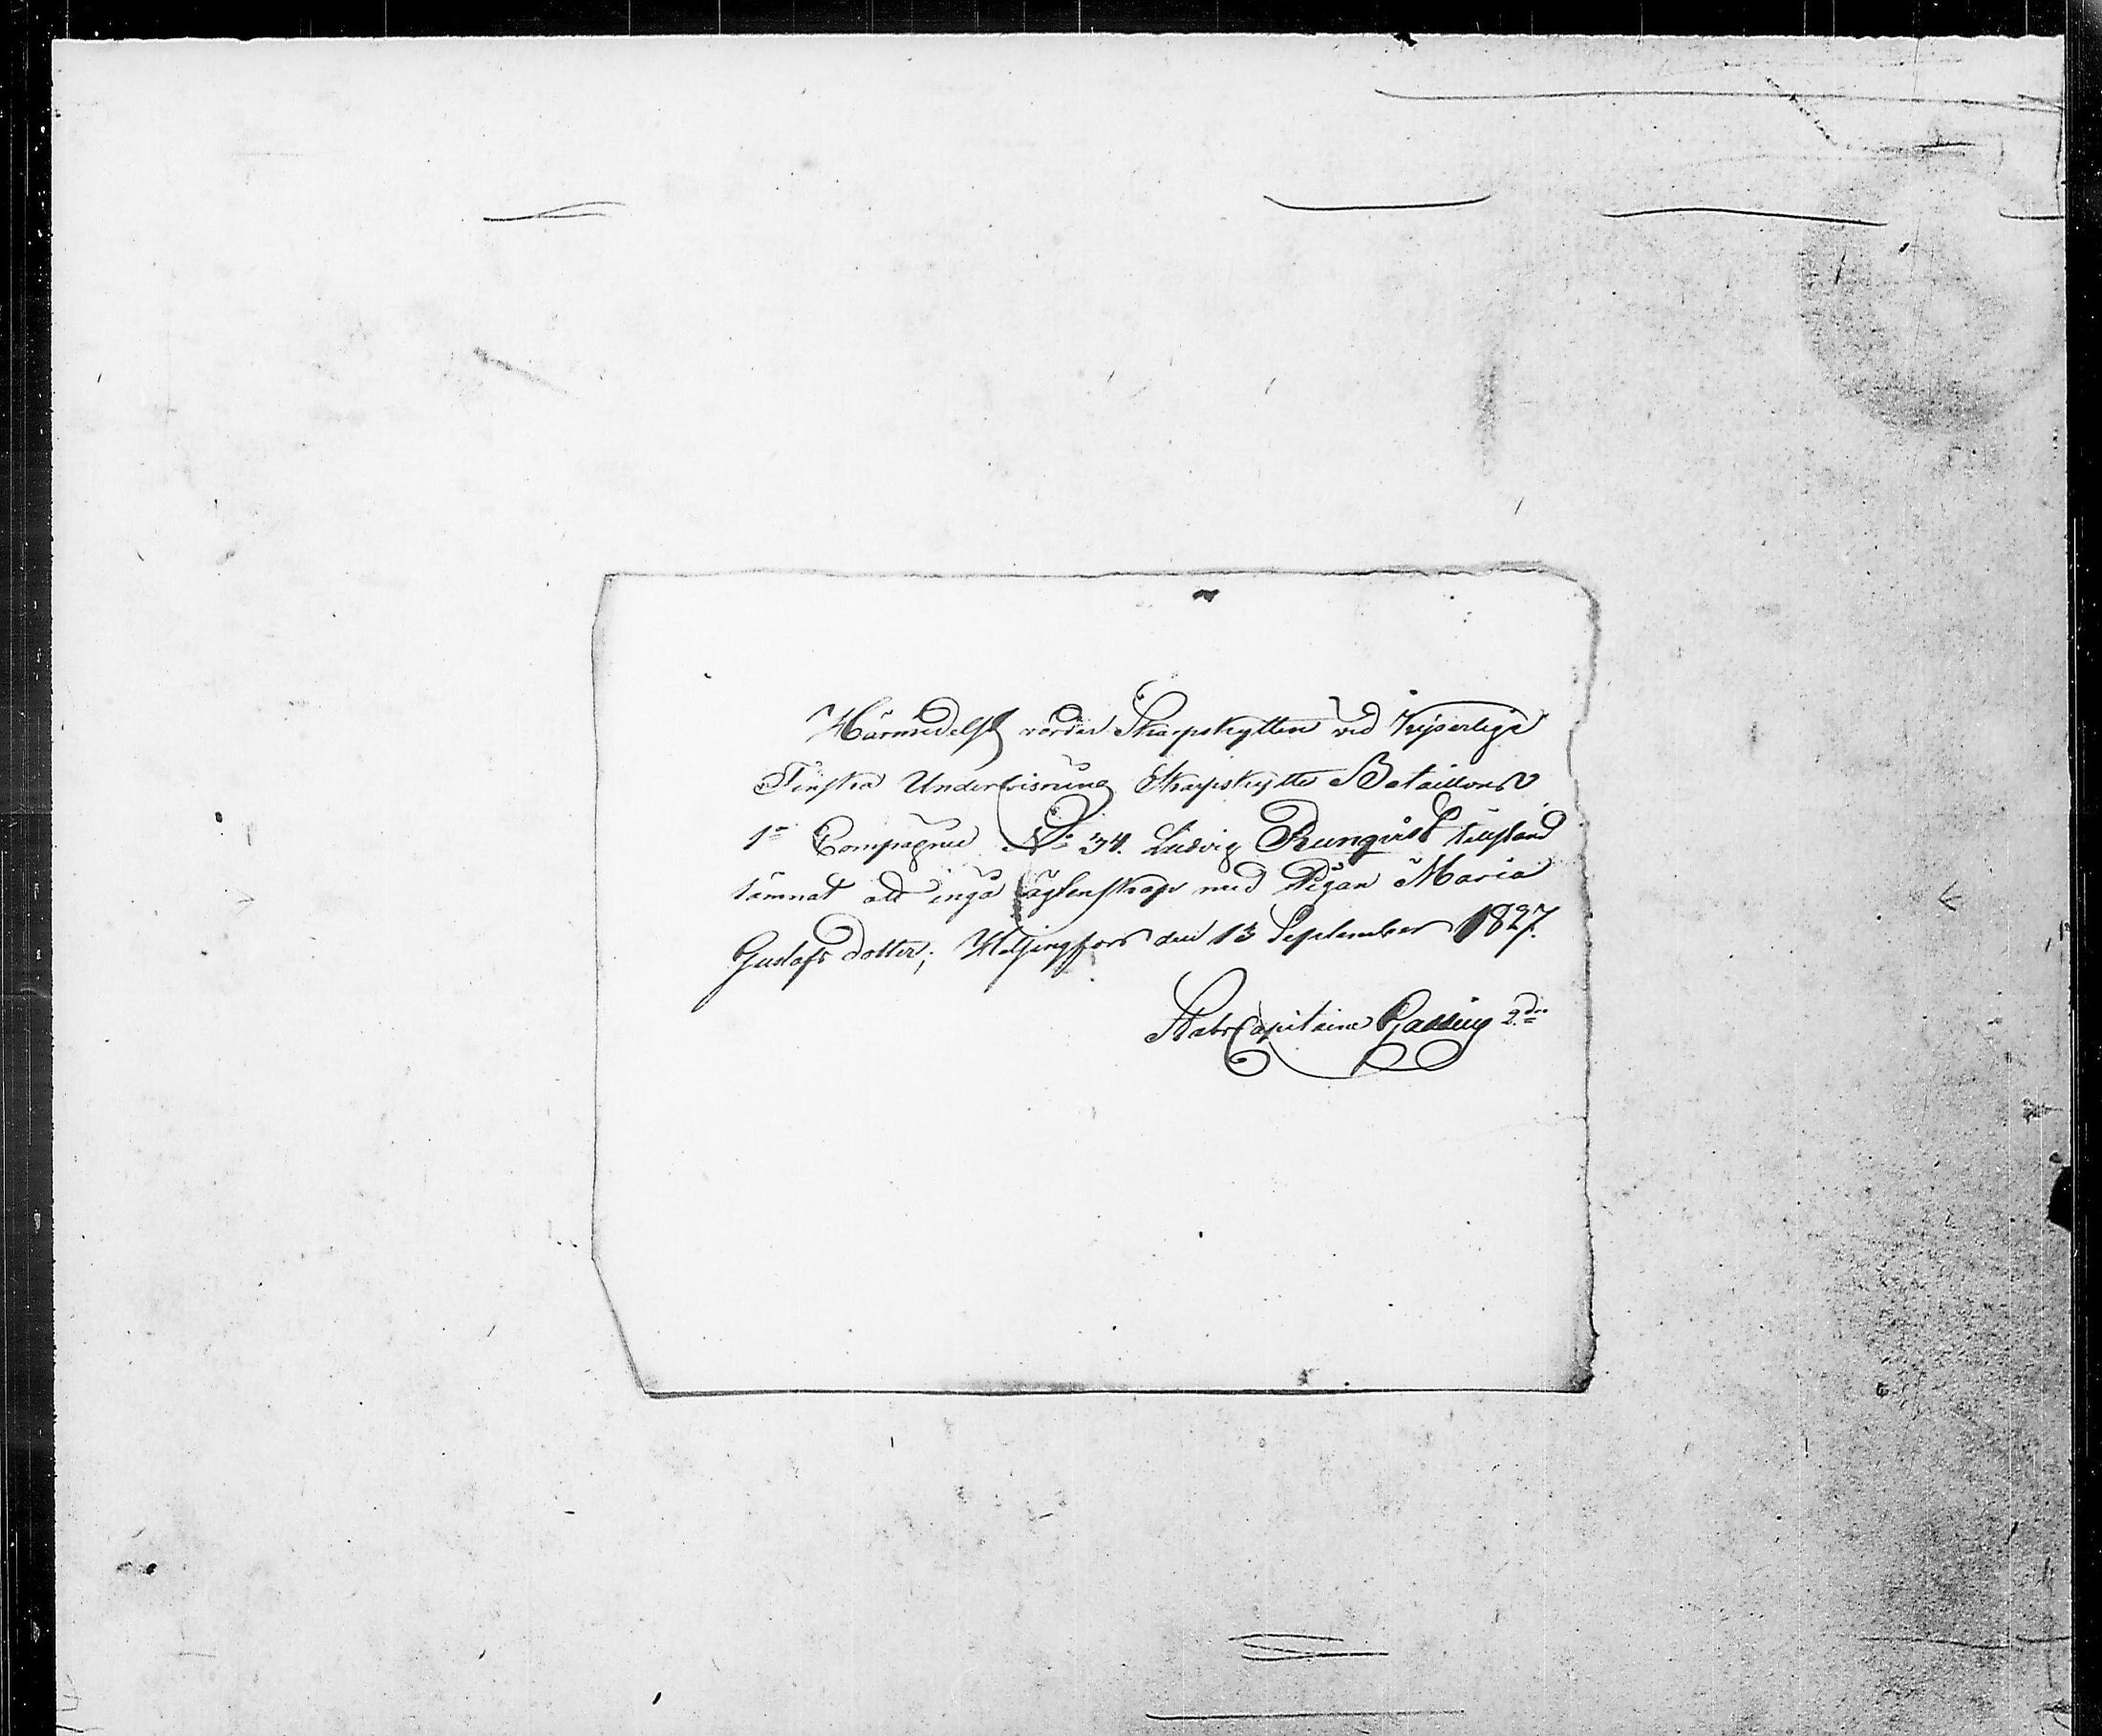 Härmedelst varder Skarpskytten vid Kejserliga
Finska Undervisning Skarpskytte Bataillons
1:a Compagnie No 34. Ludvig Runqvist tillstånd
lämnat att ingå ägtenskap med Pigan Maria
Gustafs dotter; Helsingfors den 13 September 1827.
StabsCapitaine 2:dre